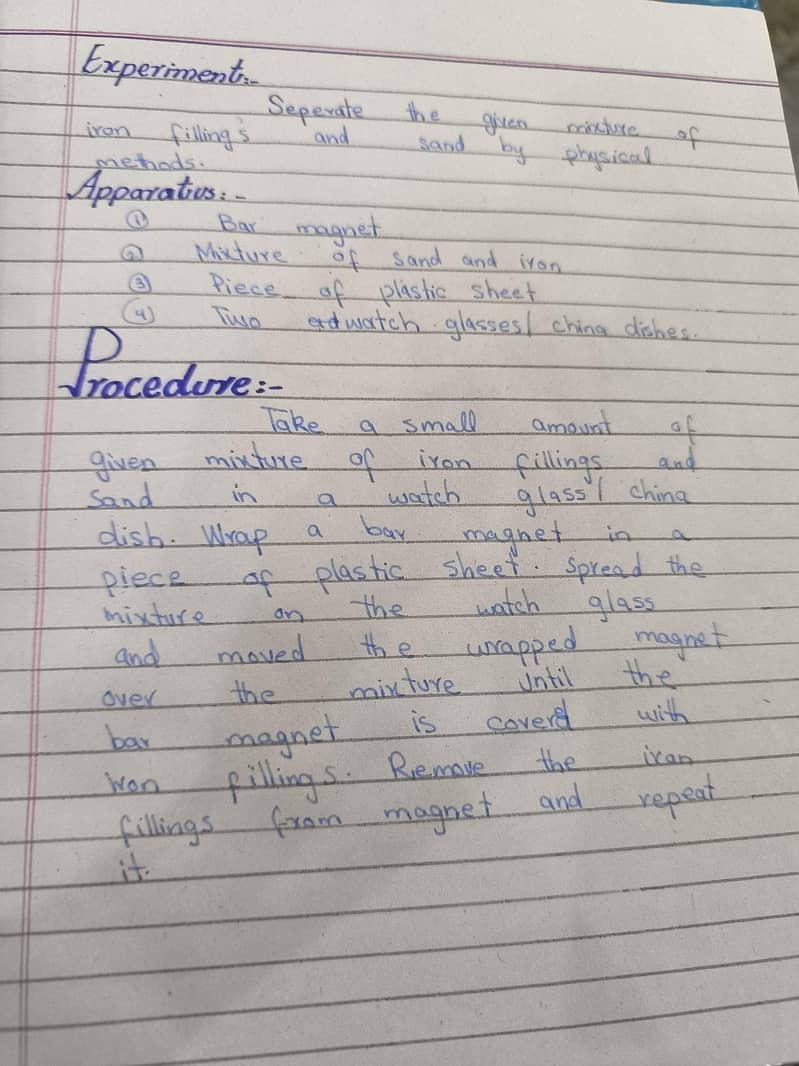 Experiment:-
Seperate the given mixture of
iron filling's and sand by physical
methods.
Apparatus:-
① Bar magnet
② Mixture of sand and iron
③ Piece of plastic sheet
④ Two watch glasses/ china dishes.
Procedure:-
Take a small amount of
given mixture of iron fillings and
sand in a watch glass/ china
dish. Wrap a bar magnet in a
piece of plastic sheet. Spread the
mixture on the watch glass
and moved the wrapped magnet
over the mixture until the
bar magnet is covered with
iron fillings. Remove the iron
fillings from magnet and repeat
it.